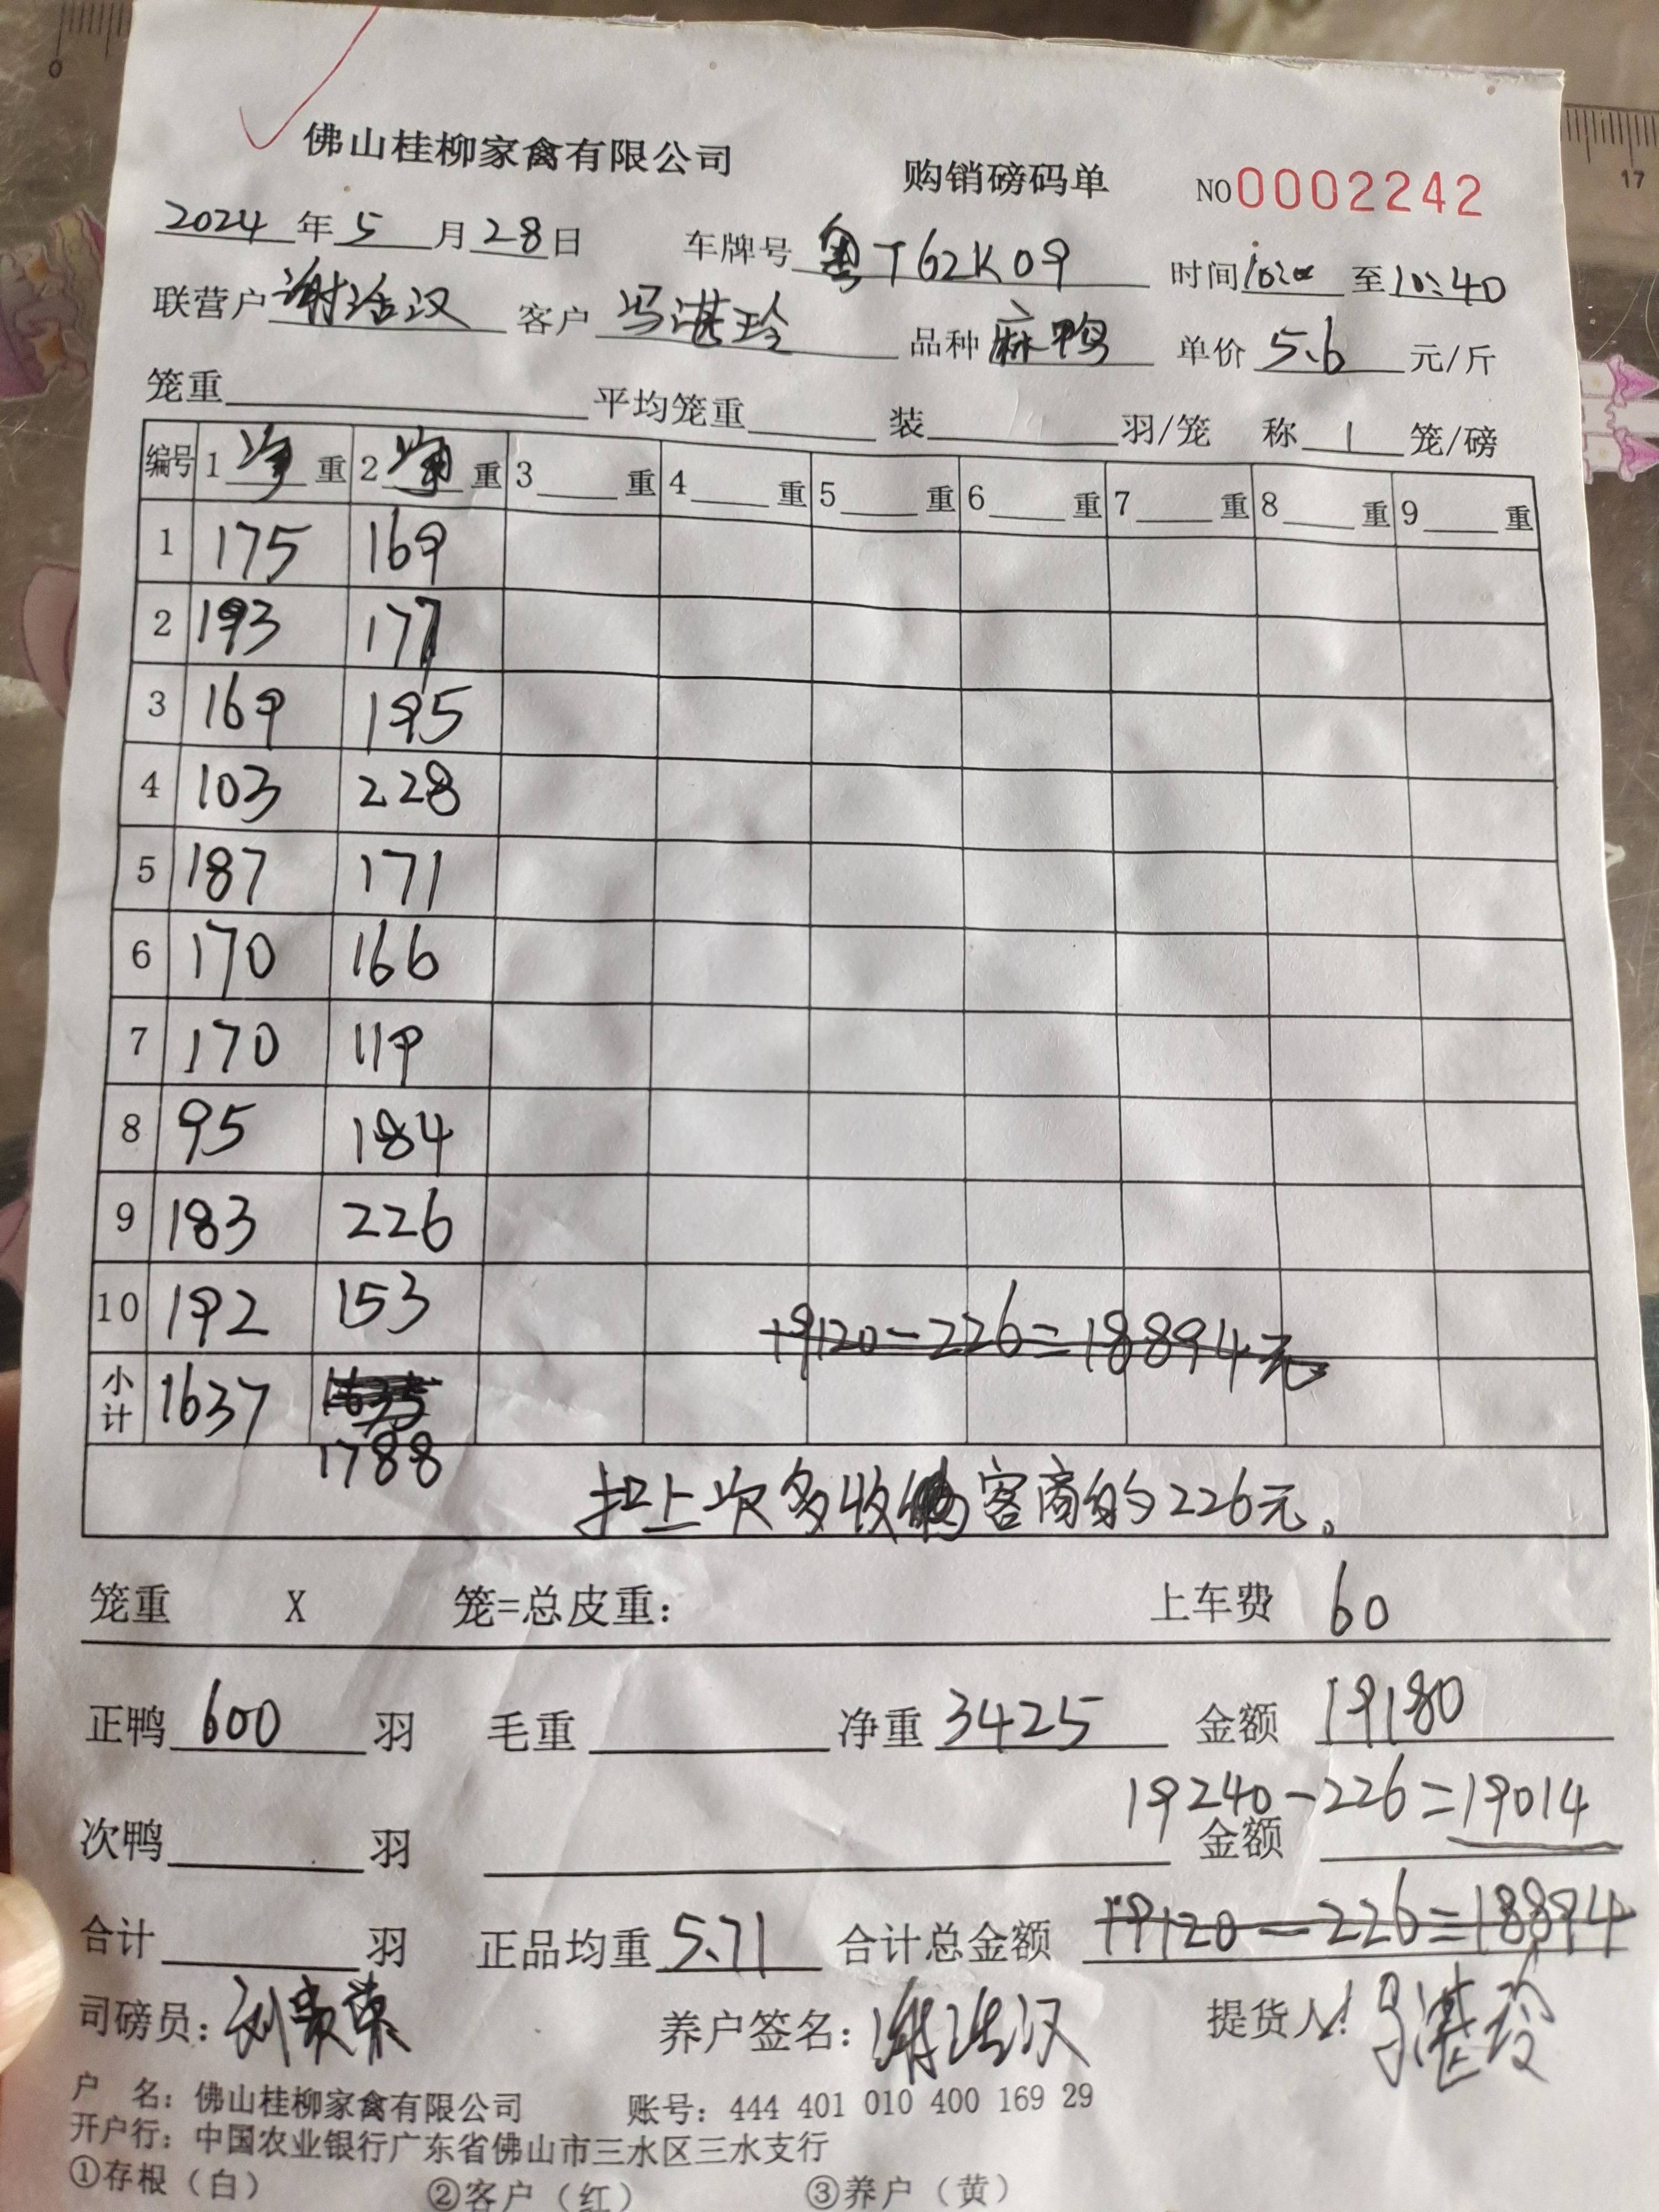 佛山桂柳家禽有限公司 购销磅码单 NO0002242
2024年5月28日 车牌号 粤T62K09 时间 至10:40
联营户 谢浩汉 客户 冯湛玲 品种 麻鸭 单价 5.6 元/斤
笼重 平均笼重 装 羽/笼 称 1 笼/磅
编号 1 净 重 2 净 重 3 重 4 重 5 重 6 重 7 重 8 重 9 重
1 175 169
2 193 177
3 169 195
4 103 228
5 187 171
6 170 166
7 170 119
8 95 184
9 183 226
10 192 153
19120-226=18894元
小计 1637 1635
1788
扣上次多收客商的226元。
笼重 X 笼=总皮重: 上车费 60
正鸭 600 羽 毛重 净重 3425 金额 19180
19240-226=19014
次鸭 羽 金额
合计 羽 正品均重 5.71 合计总金额 19120-226=18894
司磅员: 刘贵荣 养户签名: 谢浩汉 提货人: 冯湛玲
户 名: 佛山桂柳家禽有限公司 账号: 444 401 010 400 169 29
开户行: 中国农业银行广东省佛山市三水区三水支行
①存根(白) ②客户(红) ③养户(黄)
0
17